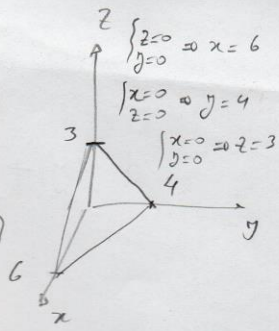 Z
{z=0 y=0 ⇒ x = 6
{x=0 z=0 ⇒ y = 4
{x=0 y=0 ⇒ z = 3
3
4
y
6
x